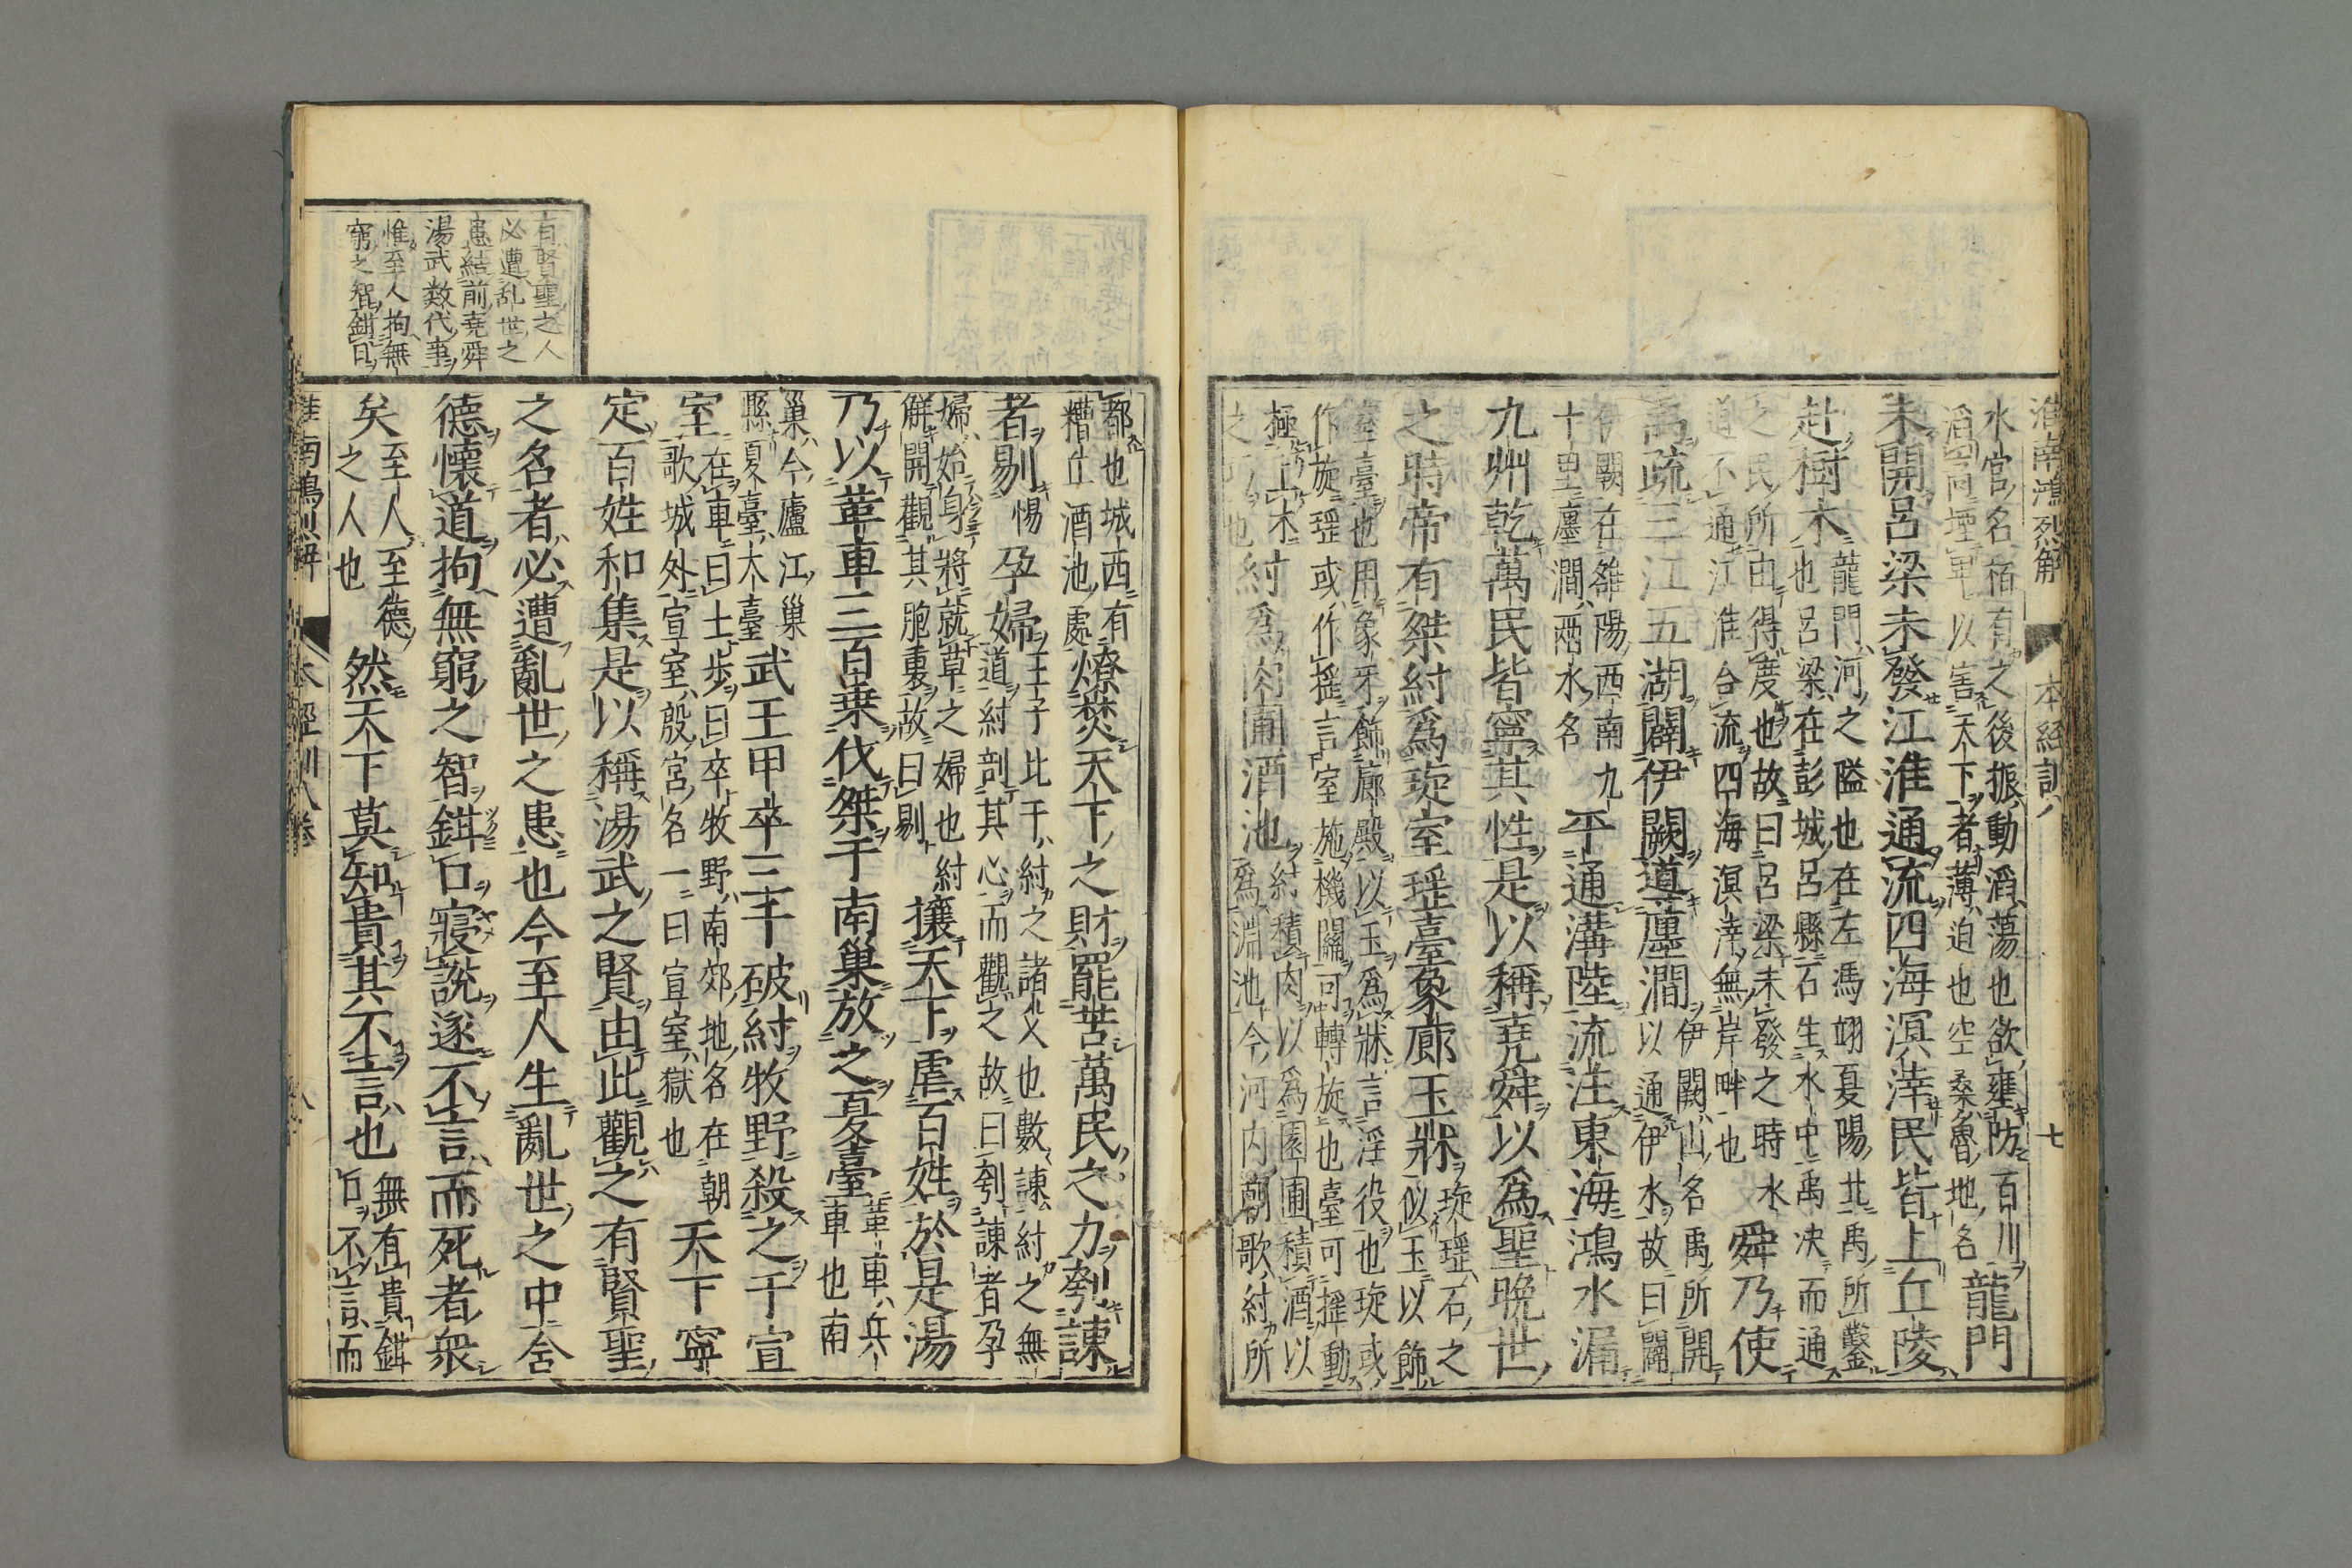 淮南鴻烈解 本經訓 七
水官名栢有之後振動滔蕩也欲壅防百川
滔高堙卑以害天下者薄迫也空桑魯地名
龍門
未開呂梁未發江淮通流四海溟涬民皆上丘陵
赴樹木
龍門河之隘也在左馮翊夏陽北禹所鑿
也呂梁在彭城呂縣石生水中禹决而通
之民所由得度也故曰呂梁未發之時水
道不通江淮合流四海溟涬無岸畔也
舜乃使
禹疏三江五湖闢伊闕導廛澗
伊闕山名禹所開
以通伊水故曰闢
伊闕在雒陽西南九
十里廛澗兩水名
平通溝陸流注東海鴻水漏
九州乾萬民皆寧其性是以稱堯舜以爲聖晩世
之時帝有桀紂爲琁室瑶臺象廊玉牀
琁瑶石之
似玉以飾
室臺也用象牙飾廊殿以玉爲牀言淫役也琁或
作旋瑶或作摇言室施機關可轉旋也臺可摇動
極土木
之巧也
紂爲肉圃酒池
紂積肉以爲園圃積酒以
爲淵池今河内朝歌紂所
都也城西有
糟丘酒池處
燎焚天下之財罷苦萬民之力刳諫
者剔
惕
孕婦
王子比干紂之諸父也數諫紂之無
道紂剖其心而觀之故曰刳諫者孕
婦始身將就草之婦也紂
解開觀其胞裏故曰剔
攘天下虐百姓於是湯
乃以革車三百乘伐桀于南巢放之夏臺
革車兵
車也南
巢今廬江巢
縣夏臺大臺
武王甲卒三千破紂牧野殺之于宣
室
在車曰士步曰卒牧野南郊地名在朝
歌城外宣室殷宮名一曰宣室獄也
天下寧
定百姓和集是以稱湯武之賢由此觀之有賢聖
之名者必遭亂世之患也今至人生亂世之中含
德懷道拘無窮之智鉗口寢說遂不言而死者衆
矣
至人至德
之人也
然天下莫知貴其不言也
無有貴鉗
口不言而
有賢聖之人
必遭乱世之
患結前堯舜
湯武数代事
惟至人拘無
窮之智鉗口
淮南鴻烈解 本經訓八卷 八